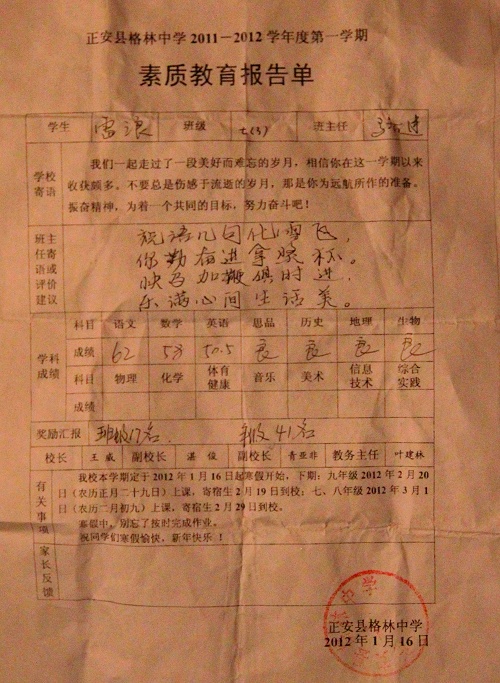 正安县格林中学2011－2012学年度第一学期
素质教育报告单
学生 雷浪 班级 七(3) 班主任
学校寄语
我们一起走过了一段美好而难忘的岁月，相信你在这一学期以来
收获颇多。不要总是伤感于流逝的岁月，那是你为远航所作的准备。
振奋精神，为着一个共同的目标，努力奋斗吧！
班主任寄语或评价建议
祝语几句化雪飞，
你勤奋进拿奖杯。
快马加鞭俱时进，
乐满心间生活美。
学科成绩
科目 语文 数学 英语 思品 历史 地理 生物
成绩 62 58 50.5 良 良 良 良
科目 物理 化学 体育健康 音乐 美术 信息技术 综合实践
成绩
奖励汇报 班级17名， 年级41名
校长 王威 副校长 谌俊 副校长 青亚非 教务主任 叶建林
有关事项
我校本学期定于2012年1月16日起寒假开始，下期：九年级2012年2月20
日（农历正月二十九日）上课，寄宿生2月19日到校；七、八年级2012年3月1
日（农历二月初九）上课，寄宿生2月29日到校。
寒假中，别忘了按时完成作业。
祝同学们寒假愉快，新年快乐！
家长反馈
正安县格林中学
2012年1月16日